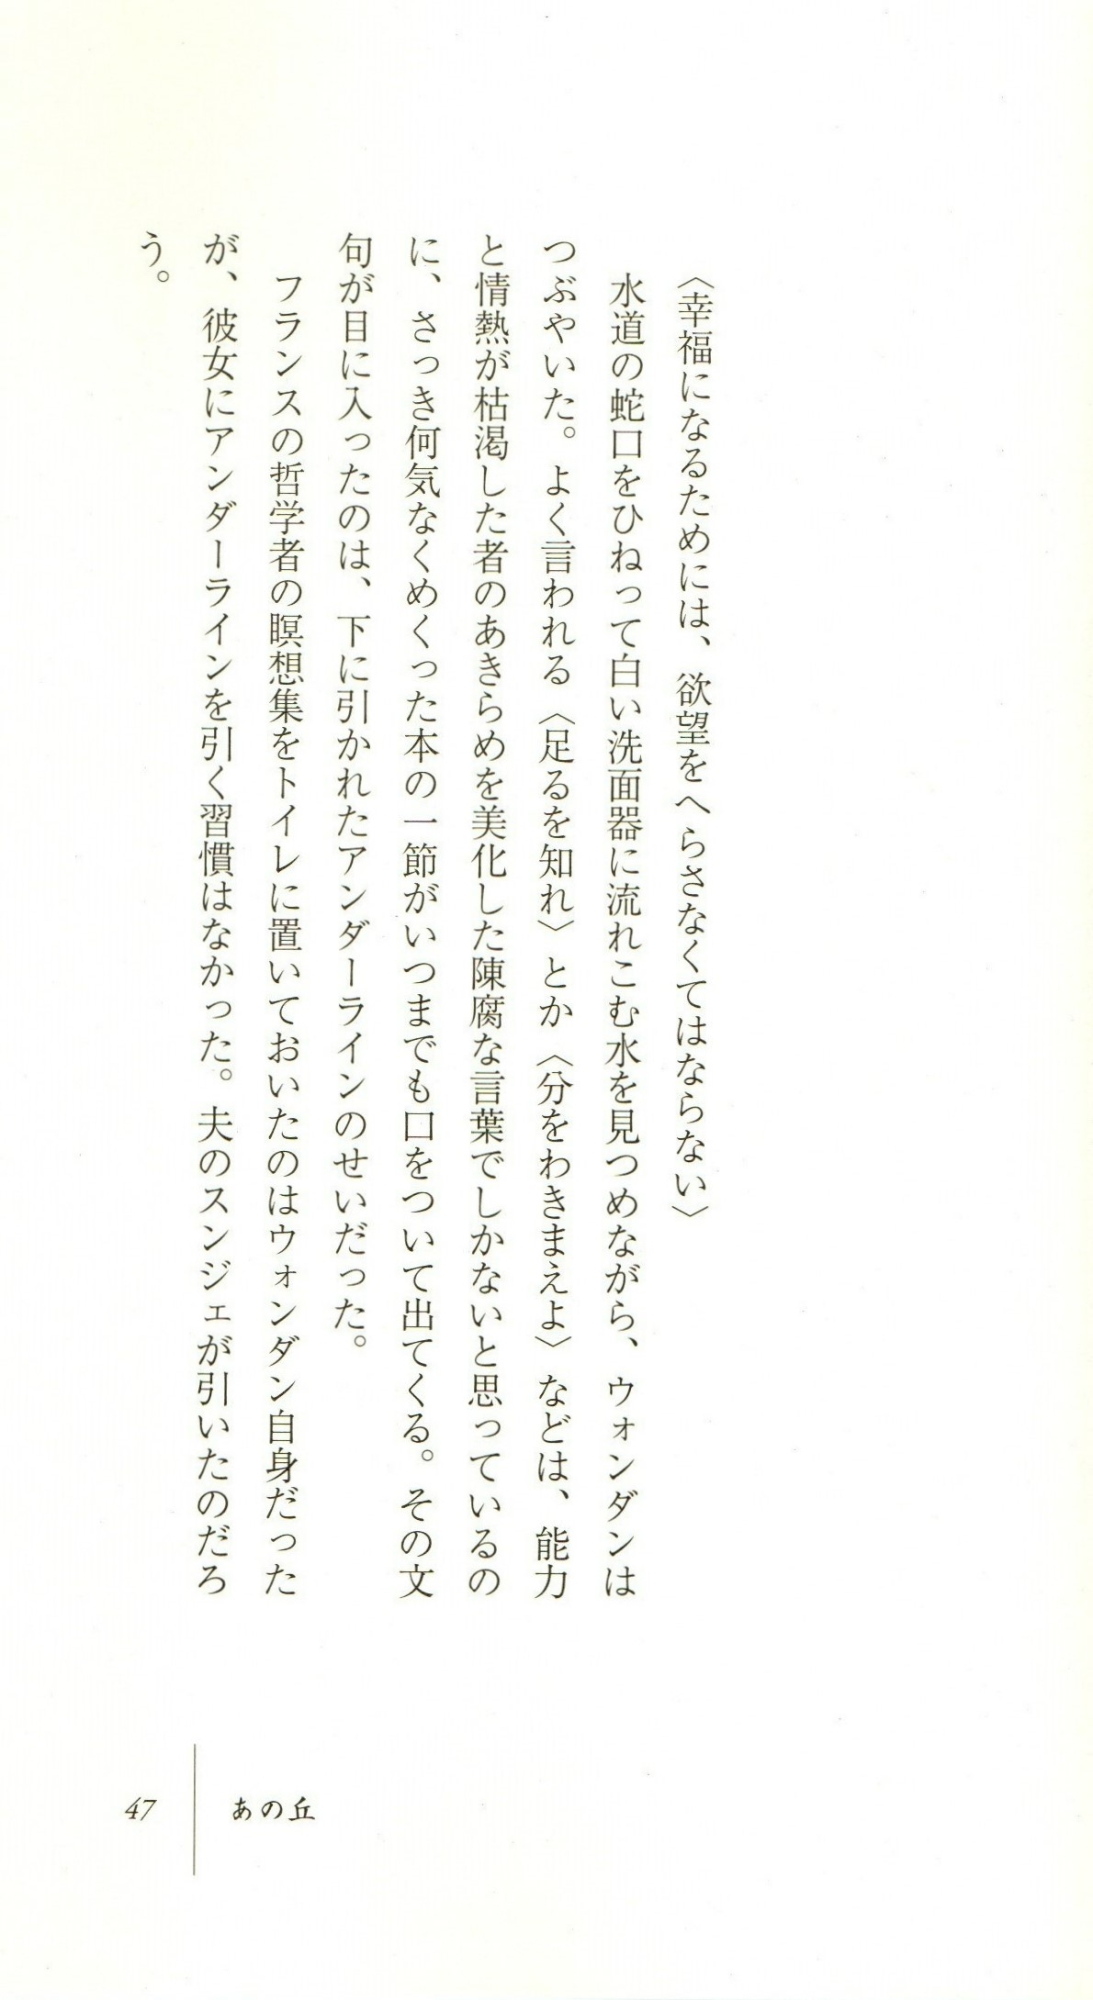 〈幸福になるためには、欲望をへらさなくてはならない〉
水道の蛇口をひねって白い洗面器に流れこむ水を見つめながら、ウォンダンは
つぶやいた。よく言われる〈足るを知れ〉とか〈分をわきまえよ〉などは、能力
と情熱が枯渇した者のあきらめを美化した陳腐な言葉でしかないと思っているの
に、さっき何気なくめくった本の一節がいつまでも口をついて出てくる。その文
句が目に入ったのは、下に引かれたアンダーラインのせいだった。
フランスの哲学者の瞑想集をトイレに置いておいたのはウォンダン自身だった
が、彼女にアンダーラインを引く習慣はなかった。夫のスンジェが引いたのだろ
う。
あの丘
47